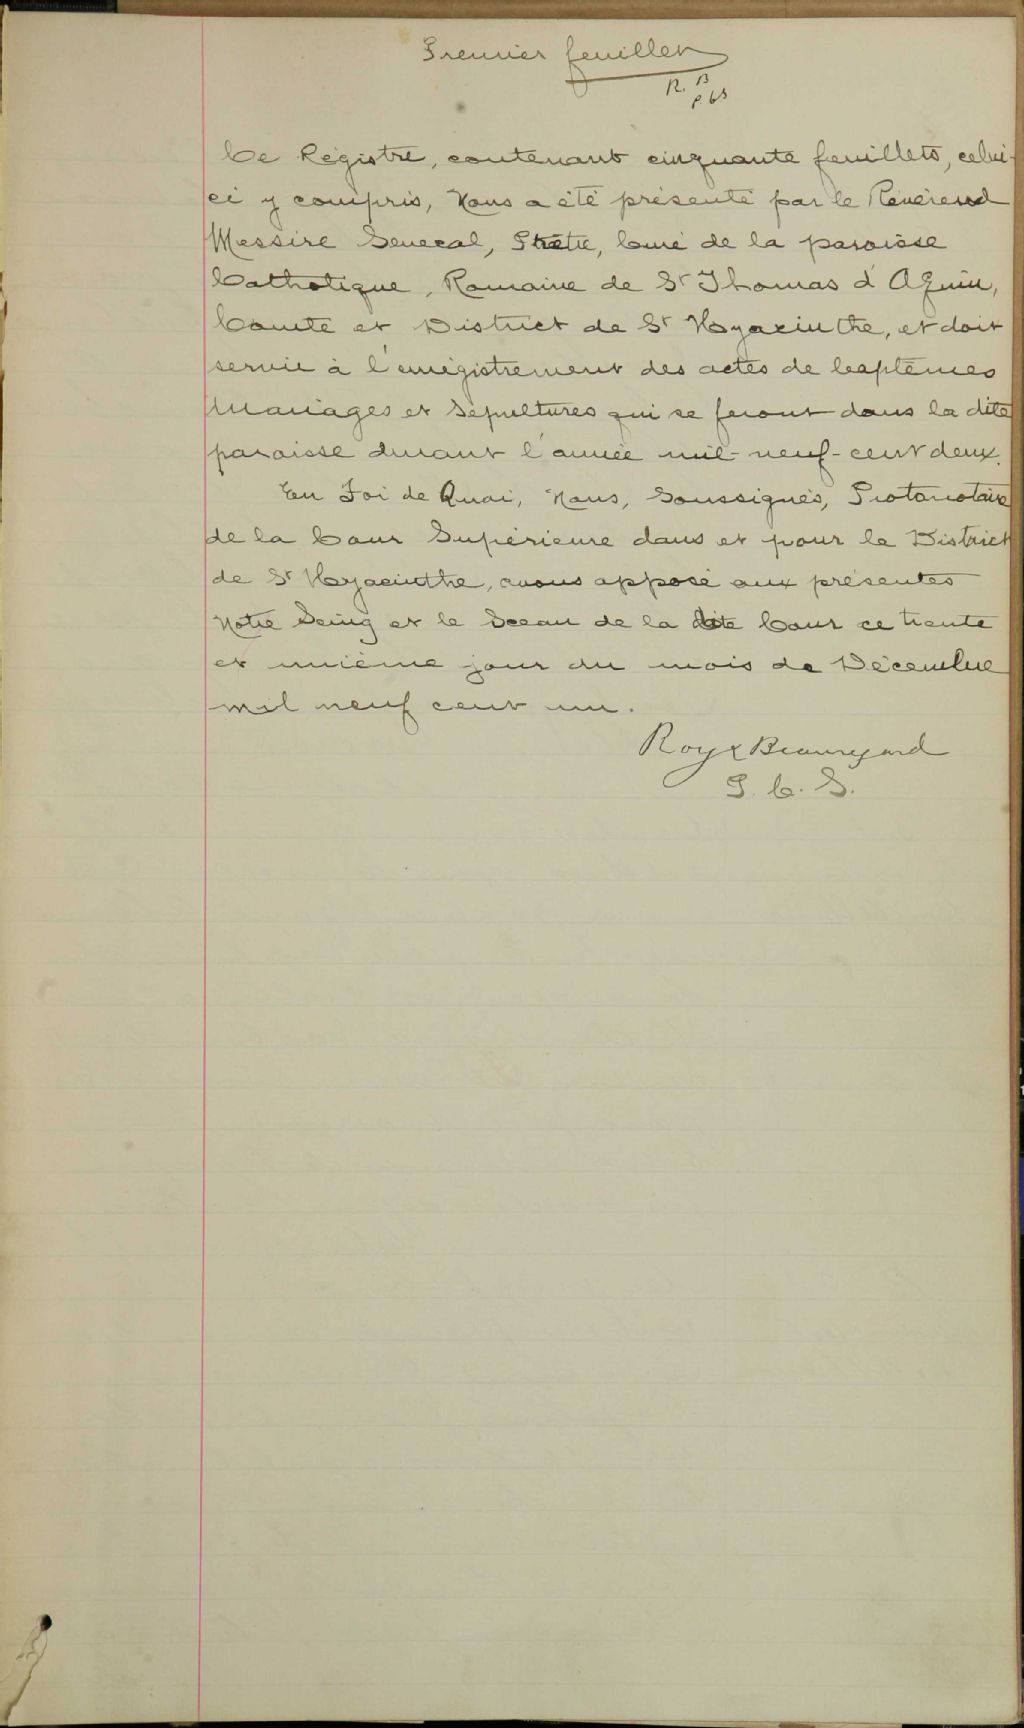 Premier feuillet
R. B
P. C. S
Ce Régistre, contenant cinquante feuillets, celui-
ci y compris, Nous a été présenté par le Révérend
Messire Senecal, Prêtre, Curé de la paroisse
Catholique, Romaine de St Thomas d'Aquin,
Comté et District de St Hyacinthe, et doit
servir à l'enrégistrement des actes de baptêmes
Mariages et Sépultures qui se feront dans la dite
paroisse durant l'année mil-neuf-cent deux.
En Foi de Quoi, Nous, Soussignés, Protonotaire
de la Cour Supérieure dans et pour le District
de St Hyacinthe, avons apposé aux présentes
Notre Seing et le Sceau de la dite Cour ce trente
et unième jour du mois de Décembre
mil neuf cent un.
Roy & Beauregard
P. C. S.